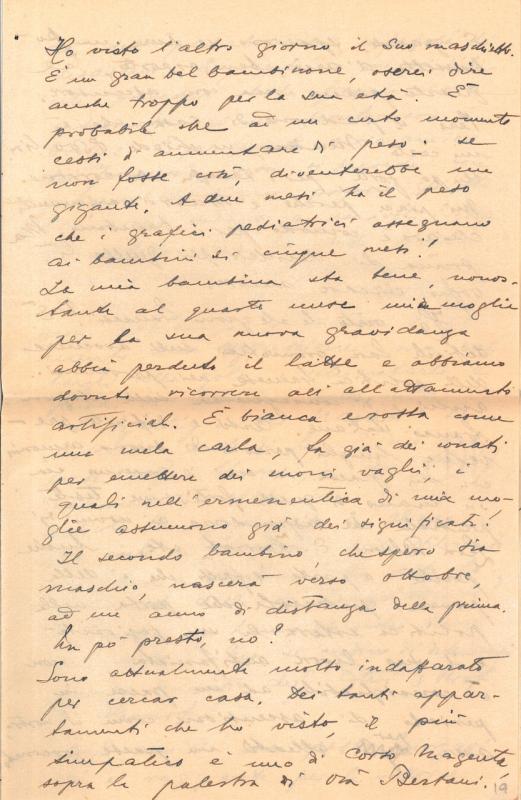 Ho visto l'altro giorno il Suo maschietto.
È un gran bel bambinone, oserei dire
anche troppo per la sua età. È
probabile che ad un certo momento
cessi d'aumentare di peso: se
non fosse così, diventerebbe un
gigante. A due mesi ha il peso
che i grafici pediatrici assegnano
ai bambini di cinque mesi!
La mia bambina sta bene, nonos-
tante al quarto mese mia moglie
per la sua nuova gravidanza
abbia perduto il latte e abbiamo
dovuto ricorrere all'allattamento
artificiale. È bianca e rossa come
una mela carla, fa già dei conati
per emettere dei suoni vaghi, i
quali nell'ermeneutica di mia mo-
glie assumono già dei significati!
Il secondo bambino, che spero sia
maschio, nascerà verso ottobre,
ad un anno di distanza della prima.
Un po' presto, no?
Sono attualmente molto indaffarato
per cercar casa. Dei tanti appar-
tamenti che ho visto, il più
simpatico è uno di Corso Magenta,
sopra la palestra di via Bertani!
19